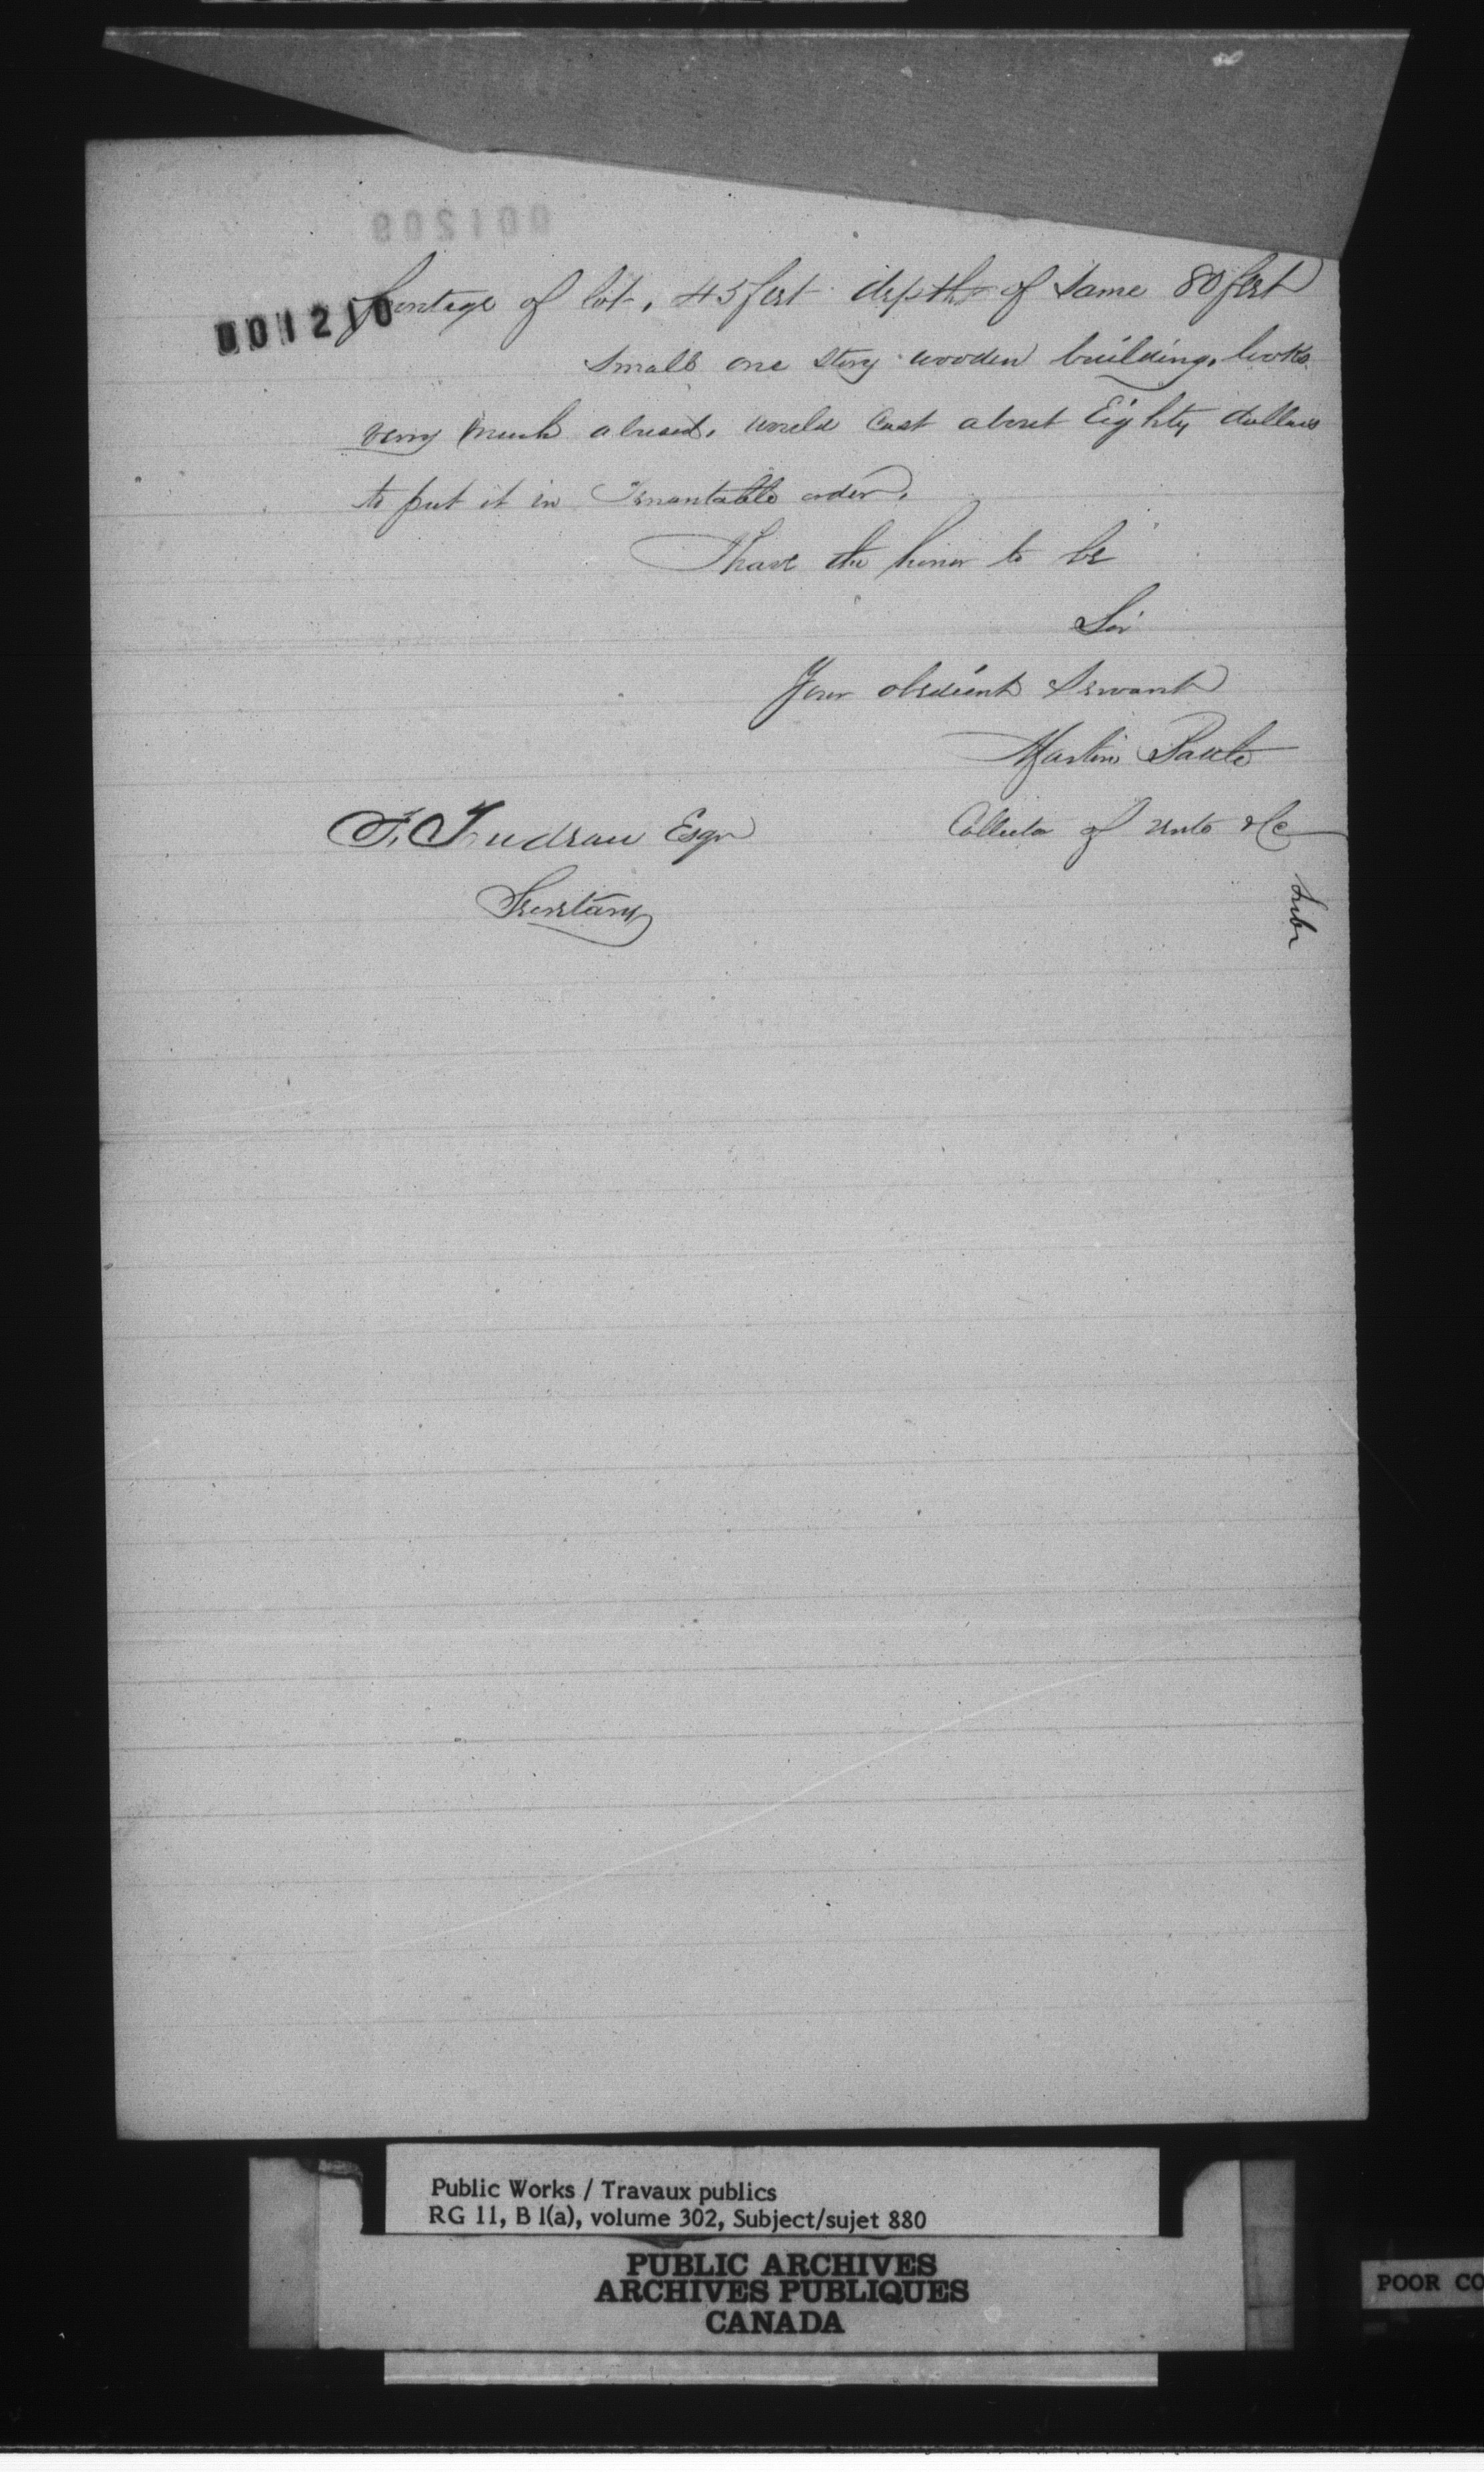 001210
frontage of lot, 45 feet depth of same 80 feet
Small one story wooden building, looks
very much abused, would cost about Eighty dollars
to put it in Tenantable order.
I have the honor to be
Sir
Your obedient Servant
Martin
Collector of Rents &c
F. Trudeau Esqr
Secretary
Public Works / Travaux publics
RG 11, B 1(a), volume 302, Subject/sujet 880
PUBLIC ARCHIVES
ARCHIVES PUBLIQUES
CANADA
POOR CO